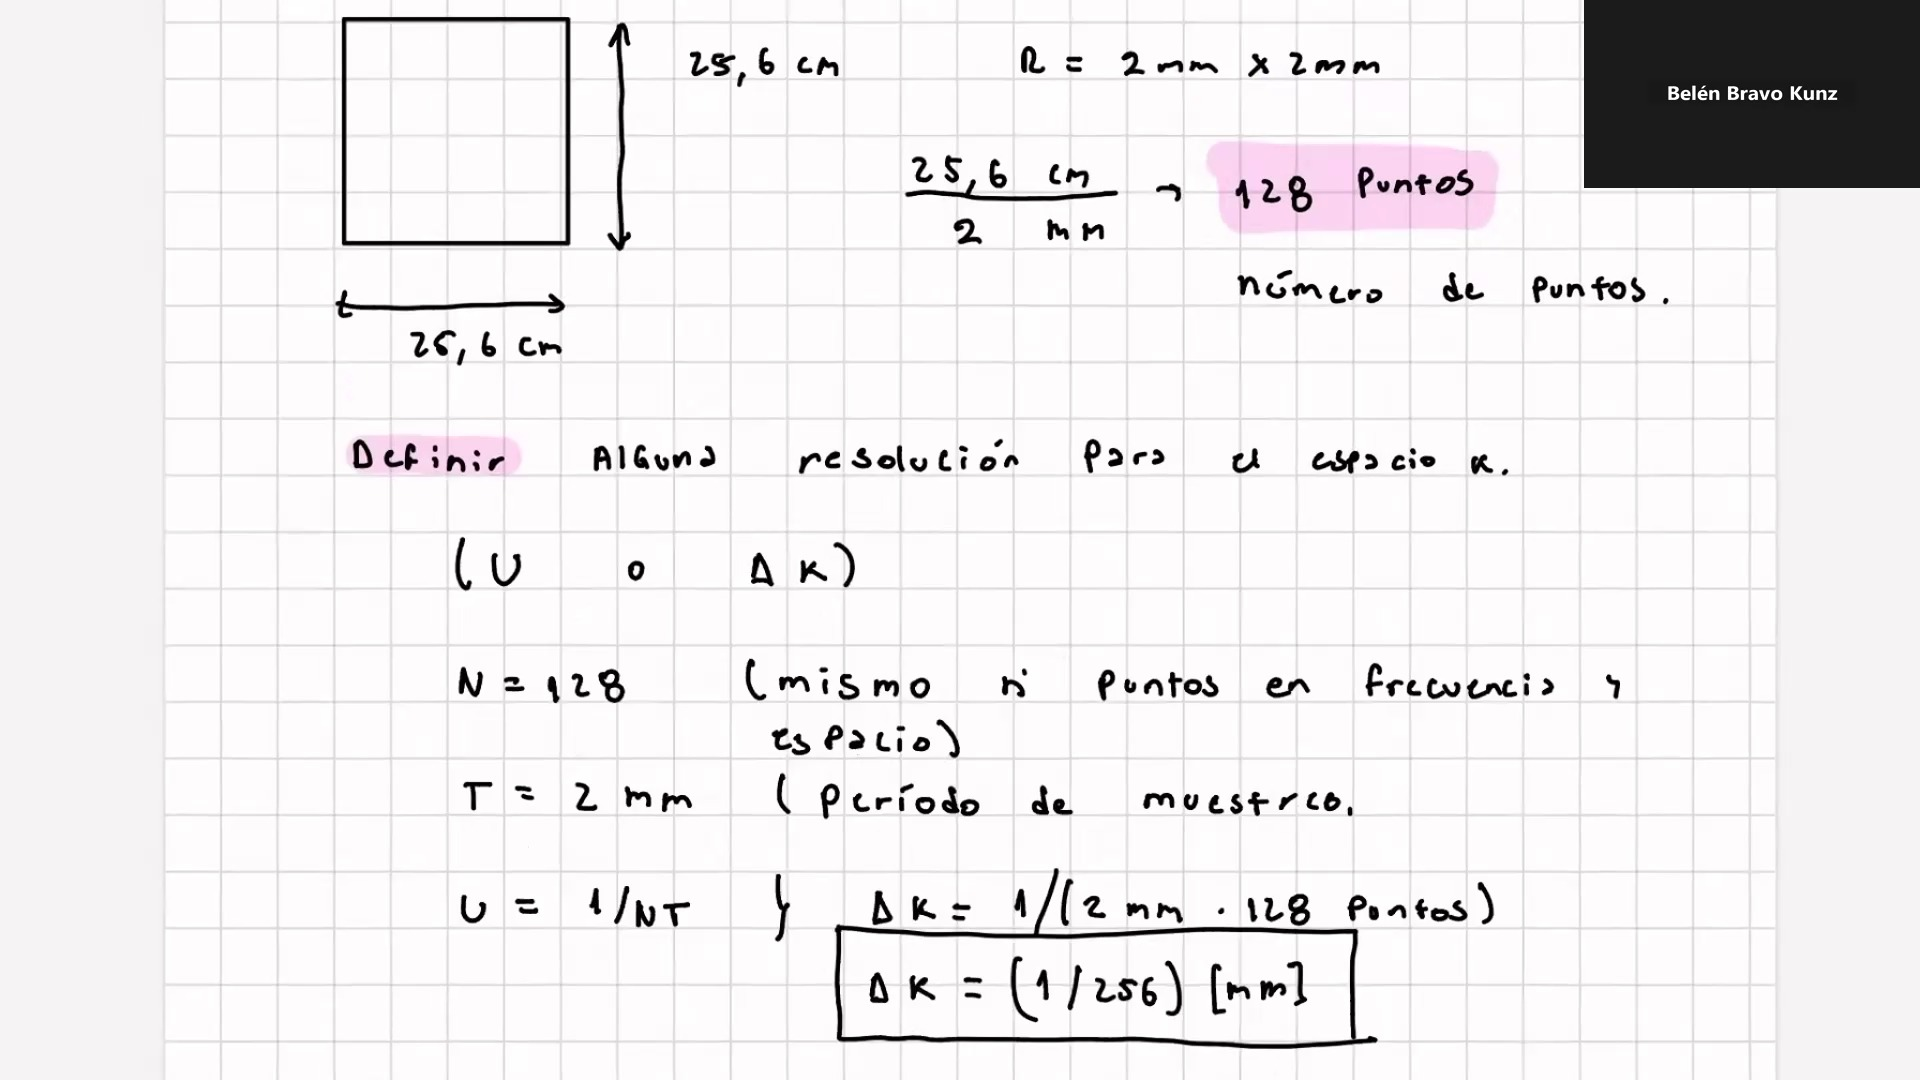 25,6 cm R = 2 mm x 2 mm
Belén Bravo Kunz
25,6 cm / 2 mm → 128 Puntos
número de puntos.
25,6 cm
Definir Alguna resolución para el espacio k.
(U o Δk)
N = 128 (mismo n° puntos en frecuencia y
espacio)
T = 2 mm (período de muestreo.
U = 1/NT } Δk = 1/(2 mm . 128 puntos)
Δk = (1/256) [mm]